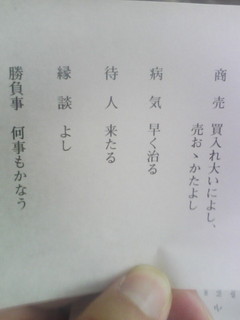 商売 買入れ大いによし、
売おゝかたよし
病気 早く治る
待人 来たる
縁談 よし
勝負事 何事もかなう